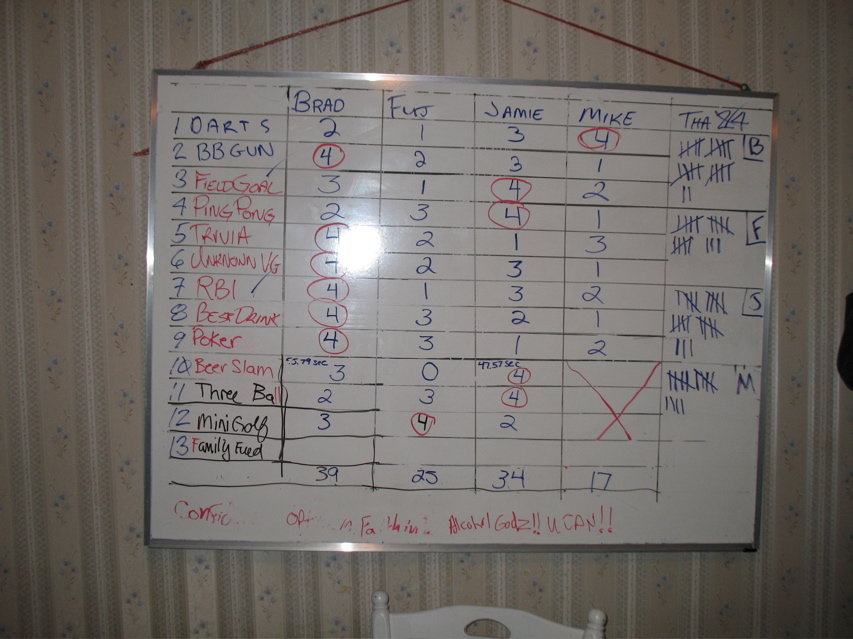 BRAD FUJ JAMIE MIKE THA 24
1 DARTS 2 1 3 4
2 BB GUN 4 2 3 1 B
3 FIELD GOAL 3 1 4 2
4 PING PONG 2 3 4 1
5 TRIVIA 4 2 1 3 F
6 UNKNOWN VG 4 2 3 1
7 RBI 4 1 3 2 J
8 BEST DRINK 4 3 2 1
9 Poker 4 3 1 2
10 Beer Slam 3 0 47.57 SEC 4 M
11 Three Ball 2 3 4
12 Mini Golf 3 4 2
13 Family Fued
39 25 34 17
Alcohol Godz!! U CAN!!